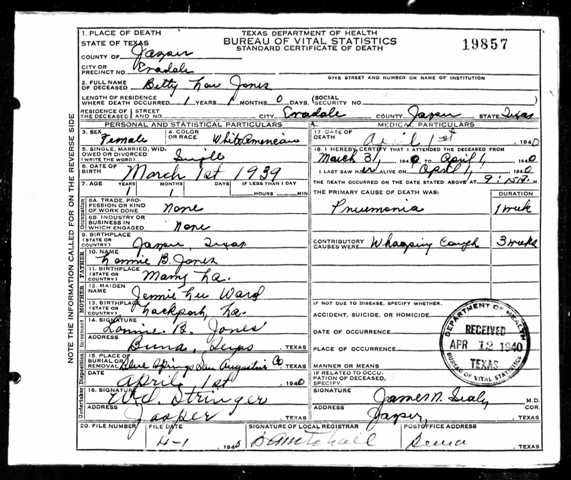 1. PLACE OF DEATH
STATE OF TEXAS
TEXAS DEPARTMENT OF HEALTH
BUREAU OF VITAL STATISTICS
STANDARD CERTIFICATE OF DEATH
19857
COUNTY OF Jasper
CITY OR PRECINCT NO. Evadale
GIVE STREET AND NUMBER OR NAME OF INSTITUTION
2. FULL NAME OF DECEASED Betty Lou Jones
LENGTH OF RESIDENCE WHERE DEATH OCCURRED 1 YEARS 1 MONTHS 0 DAYS (SOCIAL SECURITY NO.
RESIDENCE OF THE DECEASED STREET AND NO. CITY Evadale COUNTY Jasper STATE Texas
PERSONAL AND STATISTICAL PARTICULARS
3. SEX Female 4. COLOR OR RACE White American
5. SINGLE, MARRIED, WIDOWED OR DIVORCED (WRITE THE WORD) Single
6. DATE OF BIRTH March 1st 1939
7. AGE YEARS 1 MONTHS 1 DAYS IF LESS THAN 1 DAY HOURS MIN
8A. TRADE, PROFESSION OR KIND OF WORK DONE None
8B. INDUSTRY OR BUSINESS IN WHICH ENGAGED None
9. BIRTHPLACE (STATE OR COUNTRY) Jasper, Texas
FATHER
10. NAME Lonnie B. Jones
11. BIRTHPLACE (STATE OR COUNTRY) Many La.
MOTHER
12. MAIDEN NAME Jennie Lee Ward
13. BIRTHPLACE (STATE OR COUNTRY) La.
14. SIGNATURE Lonnie B. Jones
ADDRESS Buna, Texas TEXAS
15. PLACE OF BURIAL OR REMOVAL Blue Springs San Augustine Co TEXAS
DATE April 1st 1940
16. SIGNATURE Stringer
ADDRESS Jasper TEXAS
MEDICAL PARTICULARS
17. DATE OF DEATH April 1st 1940
18. I HEREBY CERTIFY THAT I ATTENDED THE DECEASED FROM
March 31, 1940, TO April 1, 1940
I LAST SAW ALIVE ON April 1, 1940
THE DEATH OCCURRED ON THE DATE STATED ABOVE AT 9:15 P.M.
THE PRIMARY CAUSE OF DEATH WAS: DURATION
Pneumonia 1 week
CONTRIBUTORY CAUSES WERE: Whooping Cough 3 weeks
IF NOT DUE TO DISEASE, SPECIFY WHETHER,
ACCIDENT, SUICIDE, OR HOMICIDE
DATE OF OCCURRENCE
PLACE OF OCCURRENCE
MANNER OR MEANS
IF RELATED TO OCCUPATION OF DECEASED, SPECIFY
SIGNATURE James N. M.D. COR.
ADDRESS Jasper, TEXAS
DEPARTMENT OF HEALTH
RECEIVED
APR 12 1940
TEXAS
BUREAU OF VITAL STATISTICS
20. FILE NUMBER FILE DATE 4-1 1940 SIGNATURE OF LOCAL REGISTRAR POSTOFFICE ADDRESS Buna TEXAS
NOTE THE INFORMATION CALLED FOR ON THE REVERSE SIDE